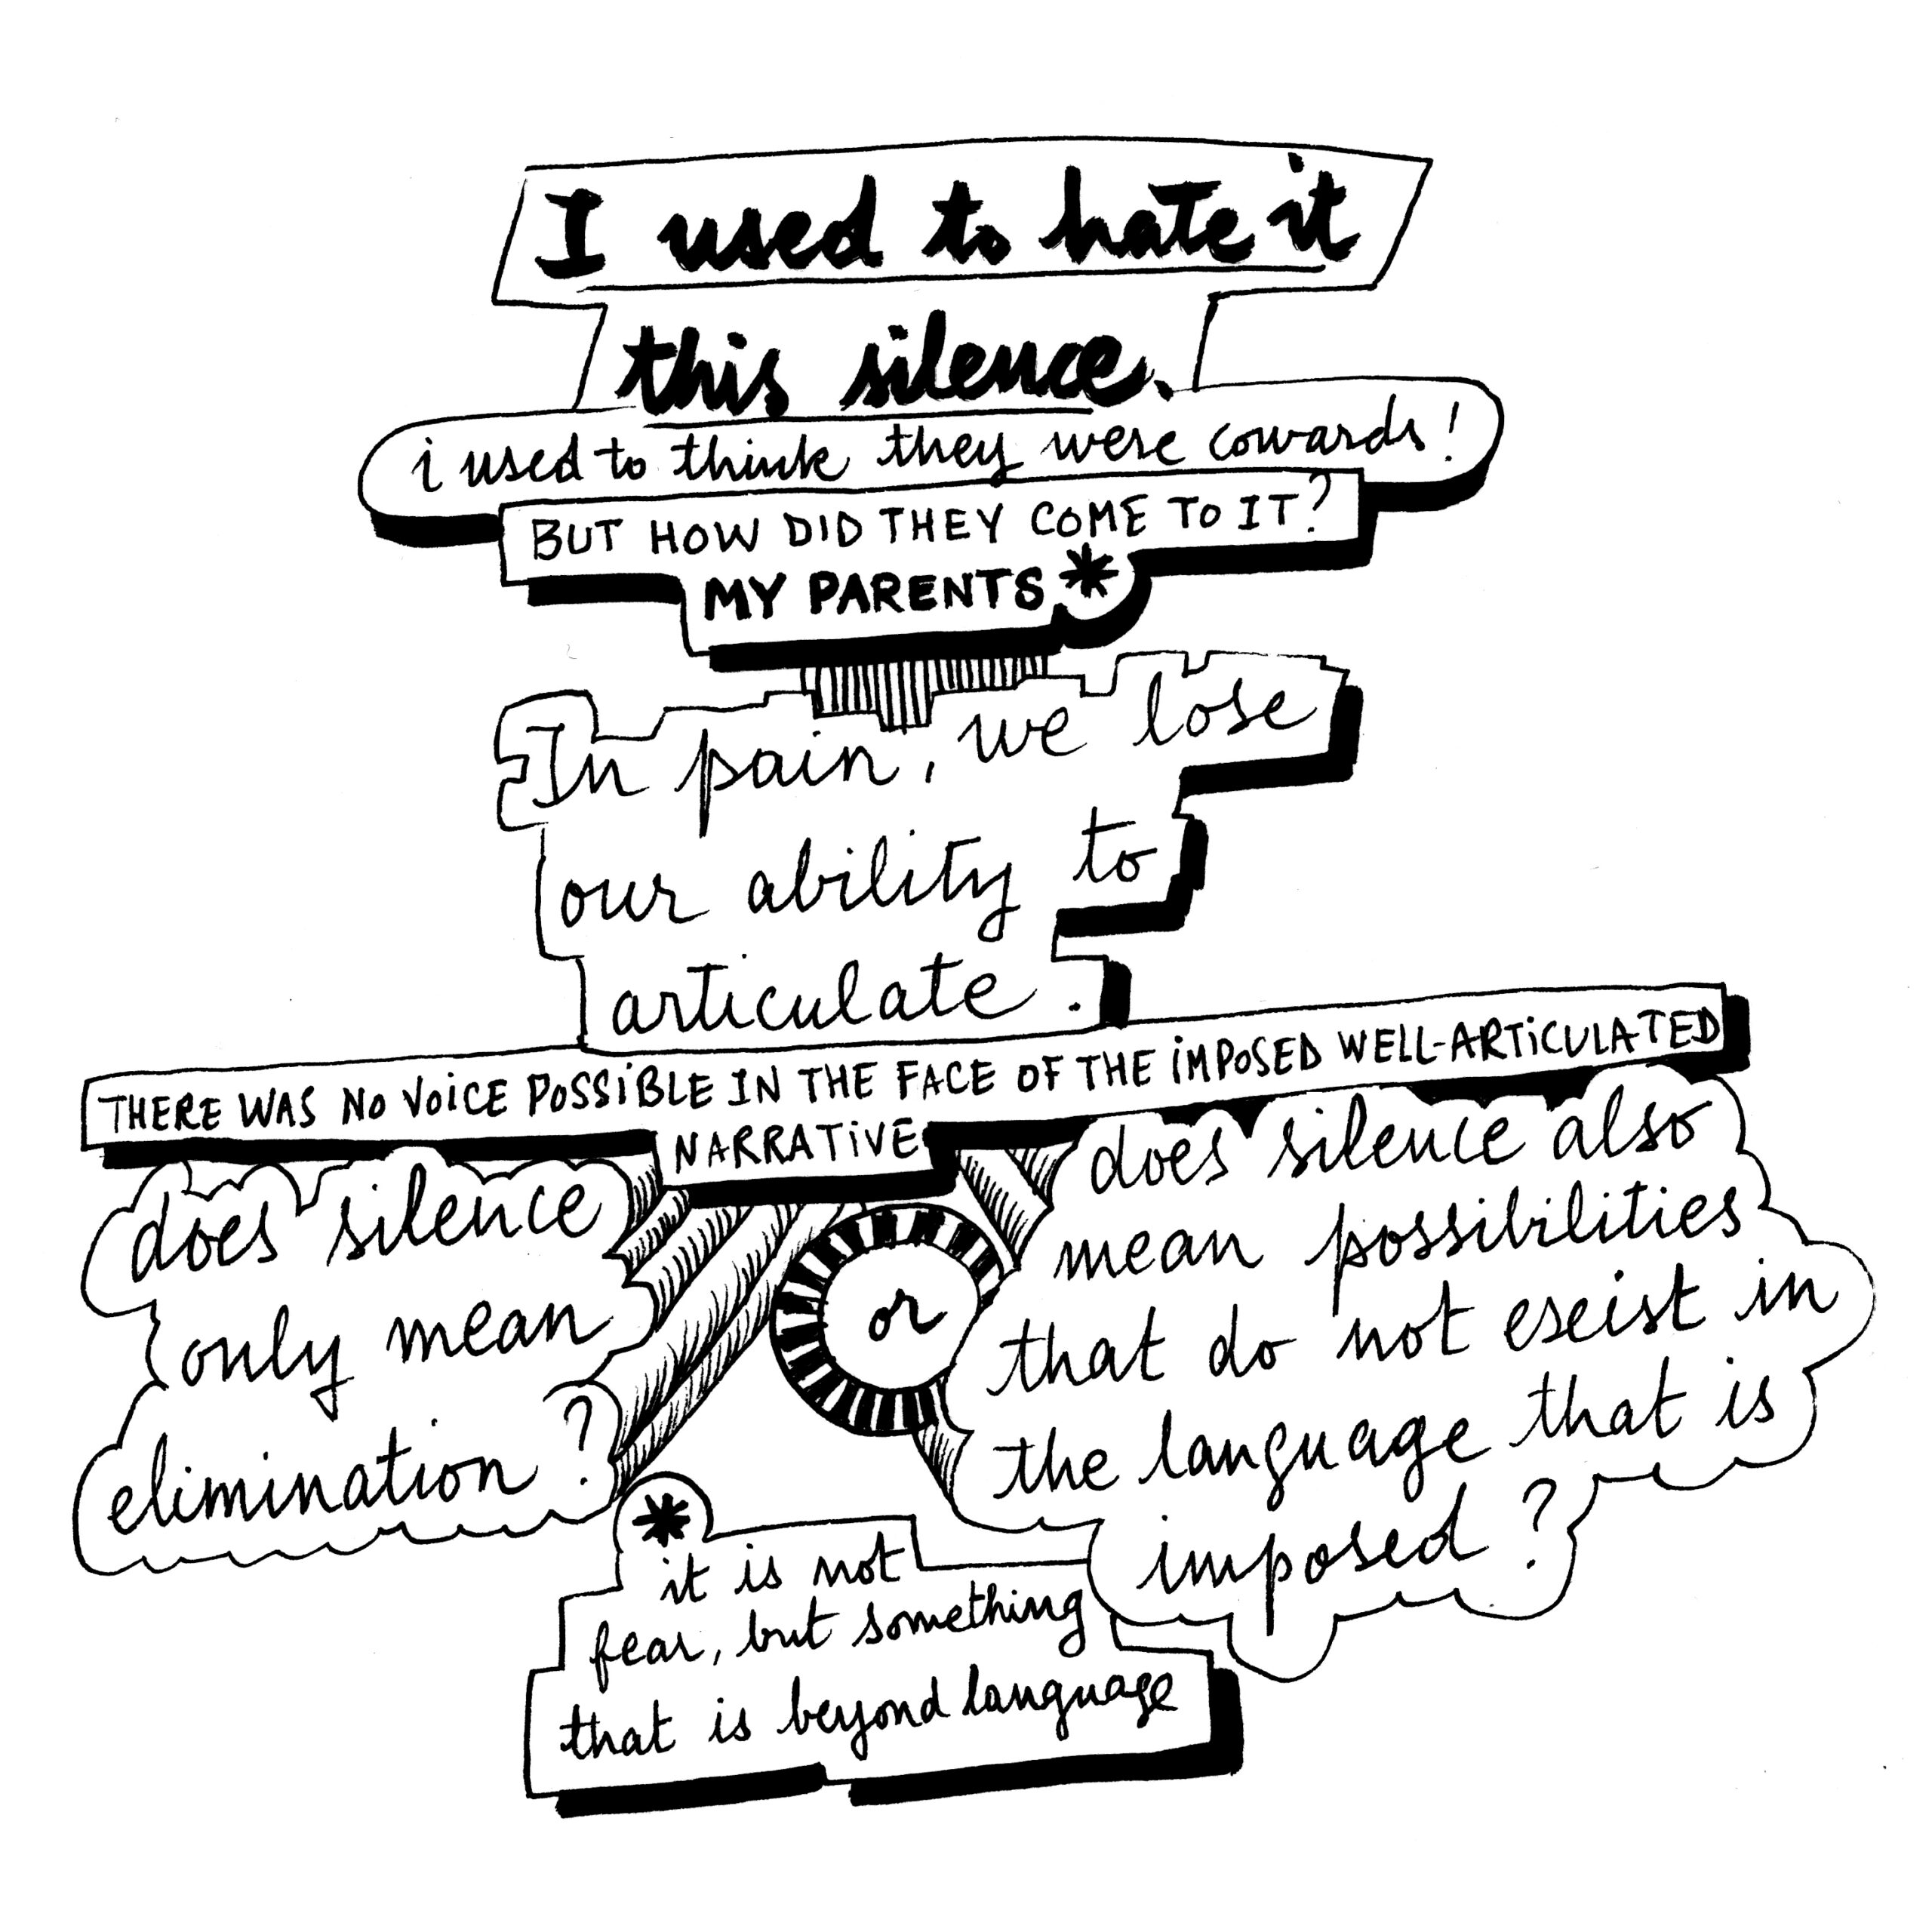 I used to hate it
this silence.
i used to think they were cowards!
BUT HOW DID THEY COME TO IT?
MY PARENTS *
In pain, we lose
our ability to
articulate.
THERE WAS NO VOICE POSSIBLE IN THE FACE OF THE IMPOSED WELL-ARTICULATED
NARRATIVE
does silence
only mean
elimination?
or
does silence also
mean possibilities
that do not exist in
the language that is
imposed?
*
it is not
fear, but something
that is beyond language